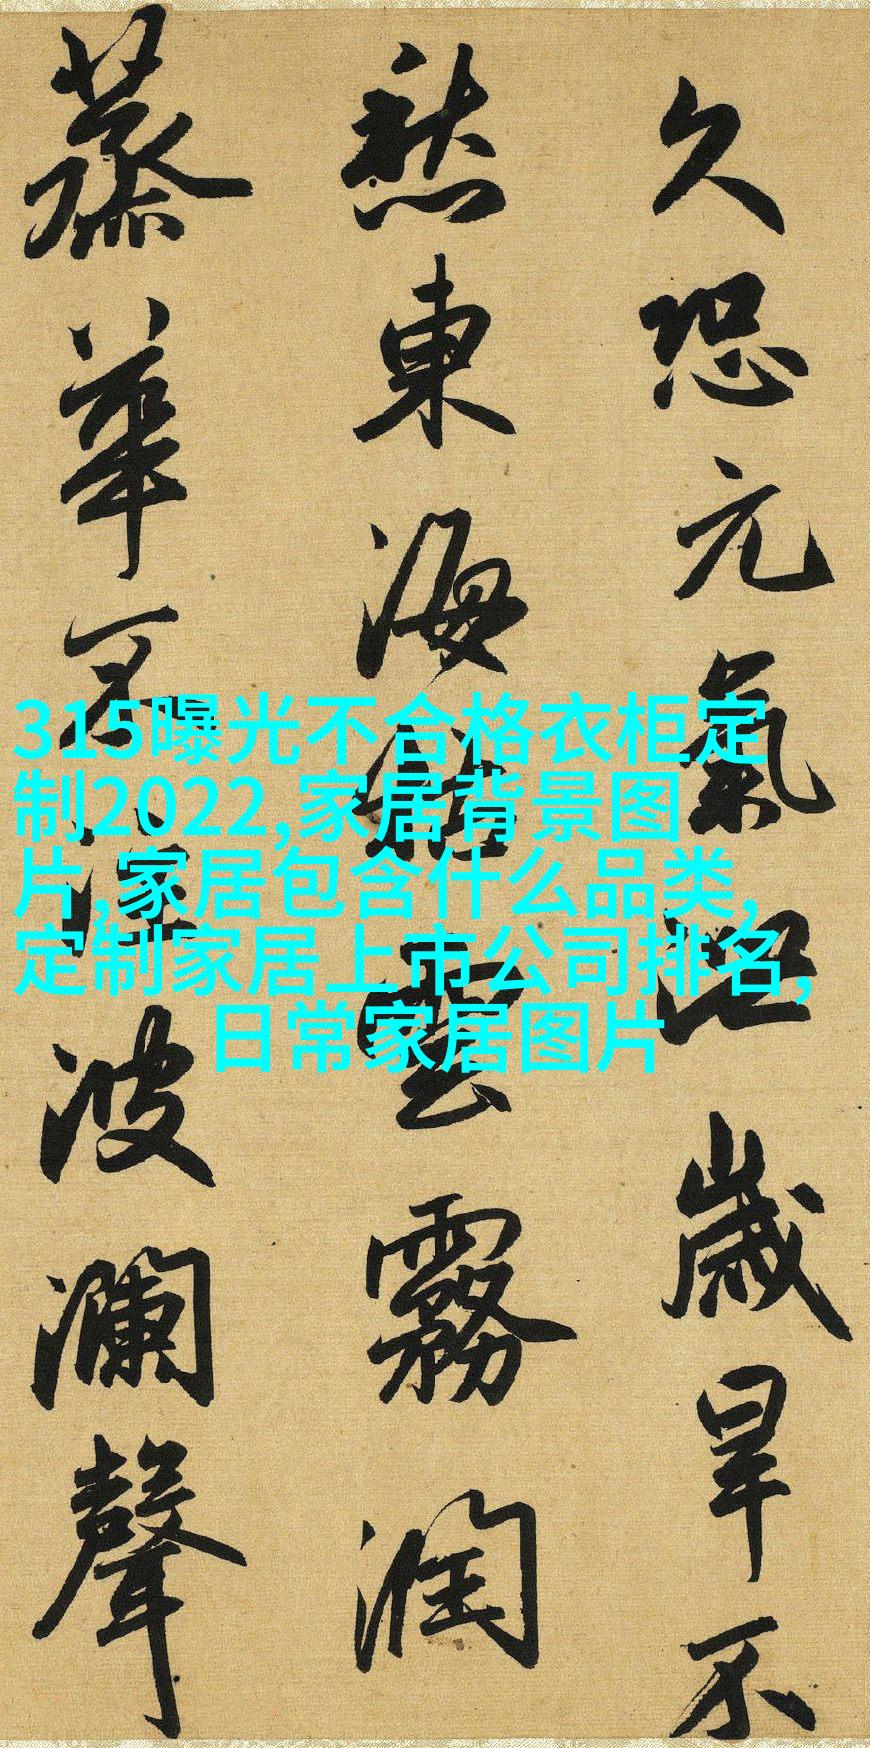 久恐元氣泄歲旱不
愁東海枯雲霧潤
蒸華不注波瀾聲
315曝光不合格衣柜定
制2022,家居背景图
片,家居包含什么品类,
定制家居上市公司排名,
日常家居图片